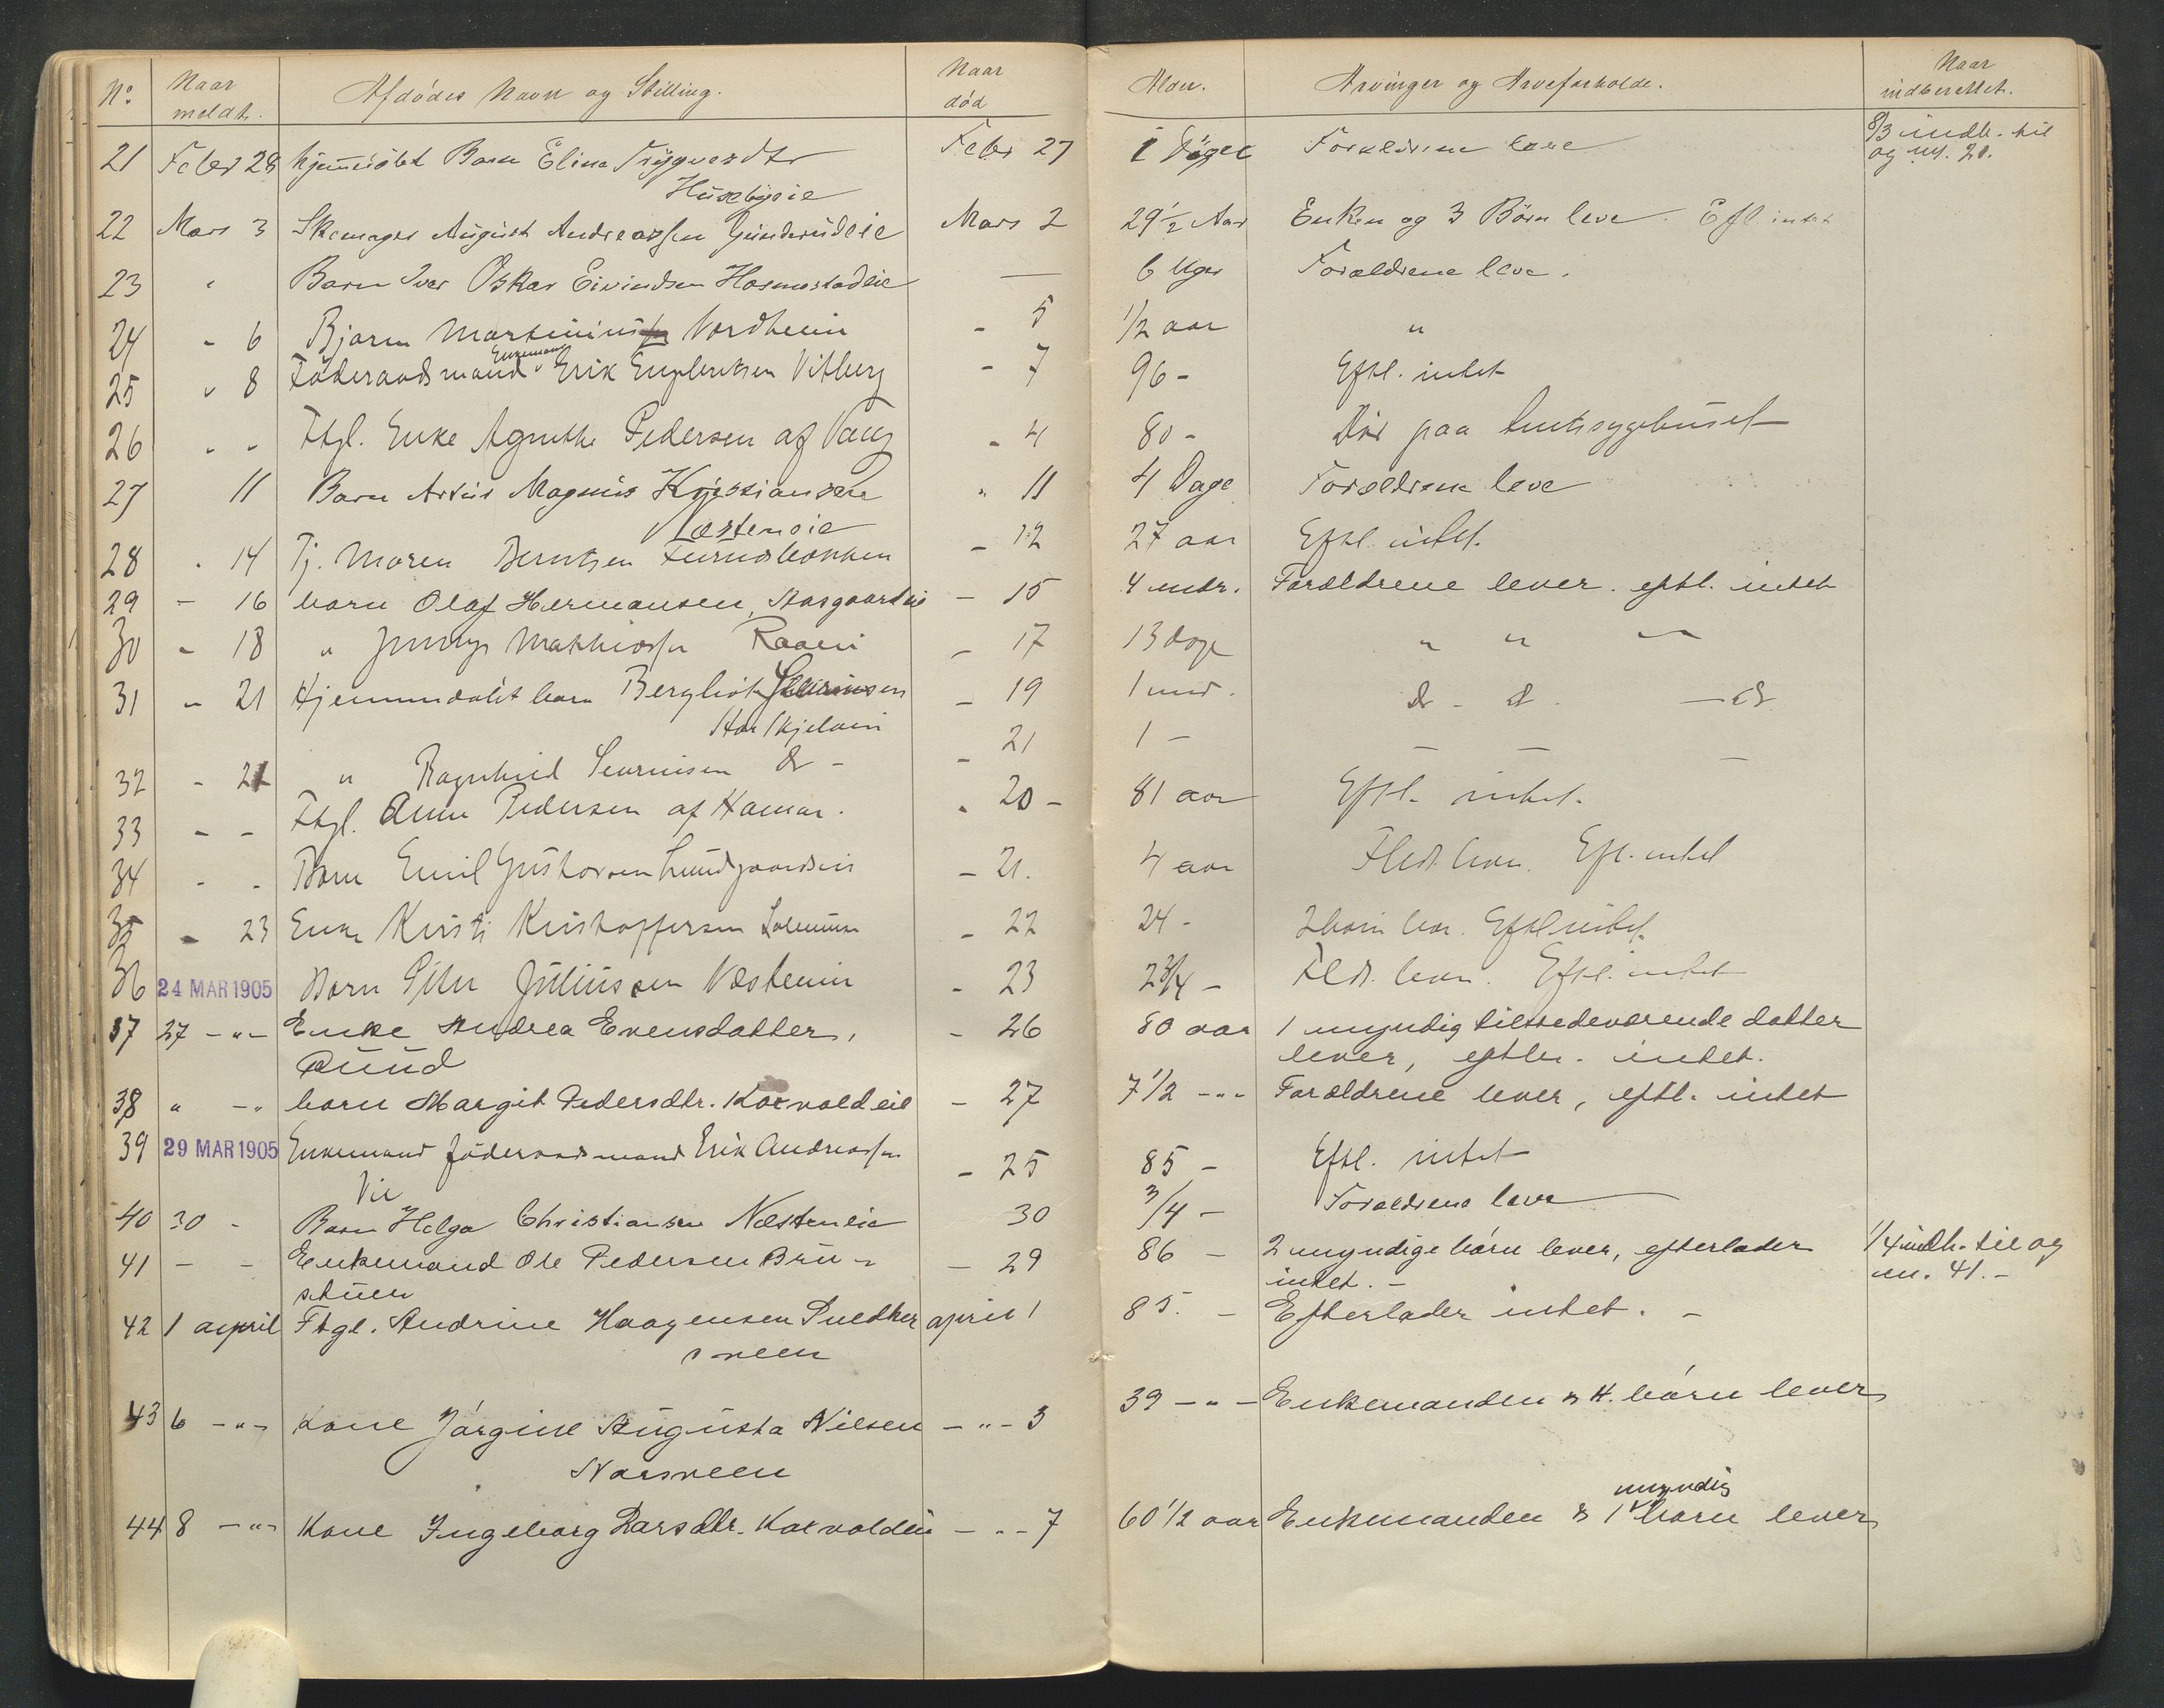 No. Naar meldt. Afdödes Navn og Stilling. Naar död Alder. Arvinger og Arveforholde. Naar indberettet.
21 Febr 28 hjemmedöbt Barn Elina Trygvesdtr Febr 27 1 Döger Forældrene leve 8/3 indb. til og nr. 20.
Husebyeie
22 Mars 3 Skomager August Andreassen Gunderudeie Mars 2 29 1/2 Aar Enken og 3 Börn leve. Efl. intet
23 " Barn Iver Oskar Eivindsen Hosmestadeie — 6 Uger Forældrene leve.
24 - 6 Bjarne Martinius Nordheim - 5 1/2 aar "
25 " 8 Föderaadsmand Enkemand Erik Engebretsen Vitberg - 7 96 - Eftl. intet
26 " - Ftgl. Enke Agnethe Pedersen af Vang - 4 80 - Död paa Amtssygehuset
27 11 Barn Artur Magnus Kristiansen " 11 4 Dage Forældrene leve
Næsteneie
28 " 14 Pj. Maren Berntsen Furnesbakken - 12 27 aar Eftl. intet.
29 - 16 barn Olaf Hermansen, Aasgaardeie - 15 4 mdr. Forældrene lever. eftl. intet
30 - 18 " Jenny Mathiassen Raaen - 17 13 dage " " —
31 - 21 Hjemmedöbt barn Bergliot Sevrinsen - 19 1 md. do - do - do
Stor Skjelven
32 - 21 " Ragnhild Sevrinsen do - - 21 1 - — — —
33 - - Ftgl. Anne Pedersen af Hamar. - 20 - 81 aar Eftl. intet.
34 - - Barn Emil Gustavsen Lundgaardseie - 21. 4 aar Fldr. lever. Eftl. intet
35 - 23 Enke Kirsti Kristoffersen - 22 24 - 2 barn lever. Eftl intet.
36 24 MAR 1905 Barn Peter Juliussen Næstenein - 23 2 3/4 - Fldr. lever. Eftl. intet
37 27 -"- Enke Andrea Evensdatter, - 26 80 aar 1 myndig tilstedeværende datter
Aunud lever, eftl. intet.
38 " -" barn Margit Pedersdtr. Korvoldeie - 27 7 1/2 -"- Forældrene lever, eftl. intet
39 29 MAR 1905 Enkemand föderaadsmand Erik Andreassen - 25 85 - Eftl. intet
Vie
40 30 - Barn Helga Christiansen Næsteneie 30 3/4 - Forældrene leve
41 - - Enkemand Ole Pedersen Bru- - 29 86 - 2 myndige börn lever, efterlader 1/4 indb. til og
stuen intet. - nr. 41. -
42 1 april Ftgl. Andrine Haagensen Snedker april 1 85. - Efterlader intet. -
sveen
43 6 -"- Kone Jörgine Augusta Nilsen -"- 3 39 -"- Enkemanden & 4. börn lever
Norsveen
44 8 -"- Kone Ingeborg Larsdtr. Korvoldeie -"- 7 60 1/2 aar Enkemanden & 1 myndig barn lever